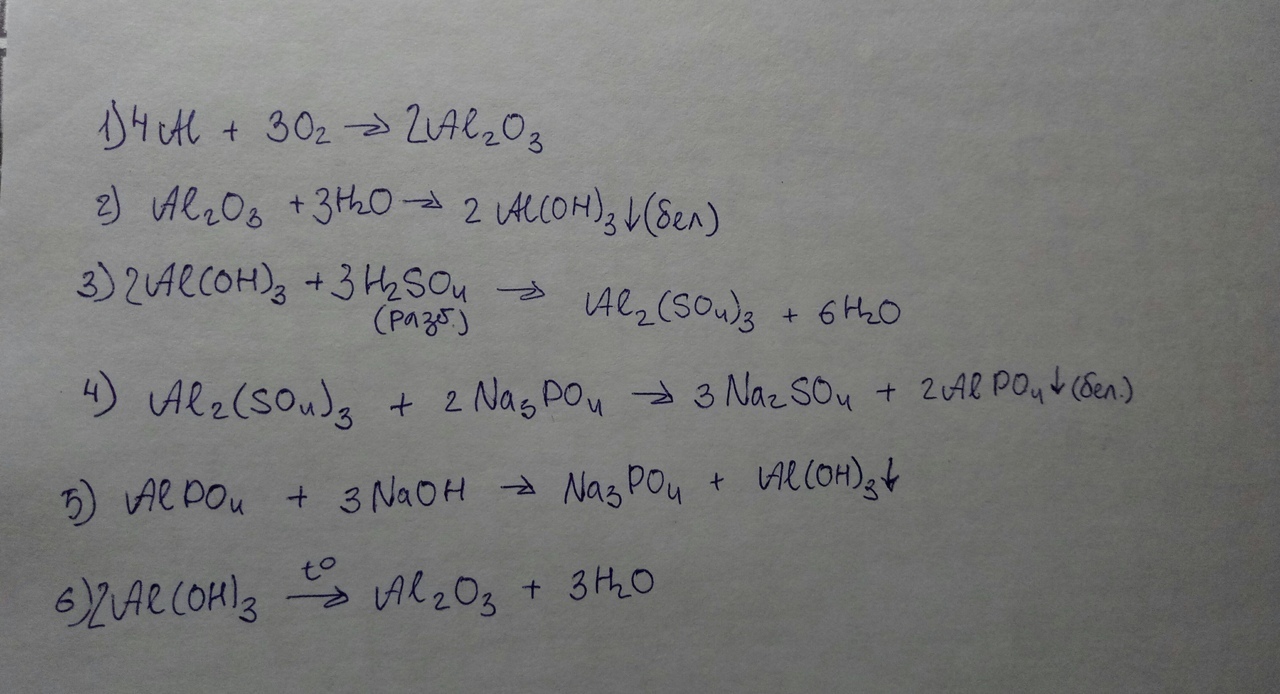 1) 4Al + 3O₂ → 2Al₂O₃
2) Al₂O₃ + 3H₂O → 2Al(OH)₃↓(бел)
3) 2Al(OH)₃ + 3H₂SO₄ → Al₂(SO₄)₃ + 6H₂O
(разб.)
4) Al₂(SO₄)₃ + 2Na₃PO₄ → 3Na₂SO₄ + 2AlPO₄↓(бел.)
5) AlPO₄ + 3NaOH → Na₃PO₄ + Al(OH)₃↓
t°
6) 2Al(OH)₃ → Al₂O₃ + 3H₂O